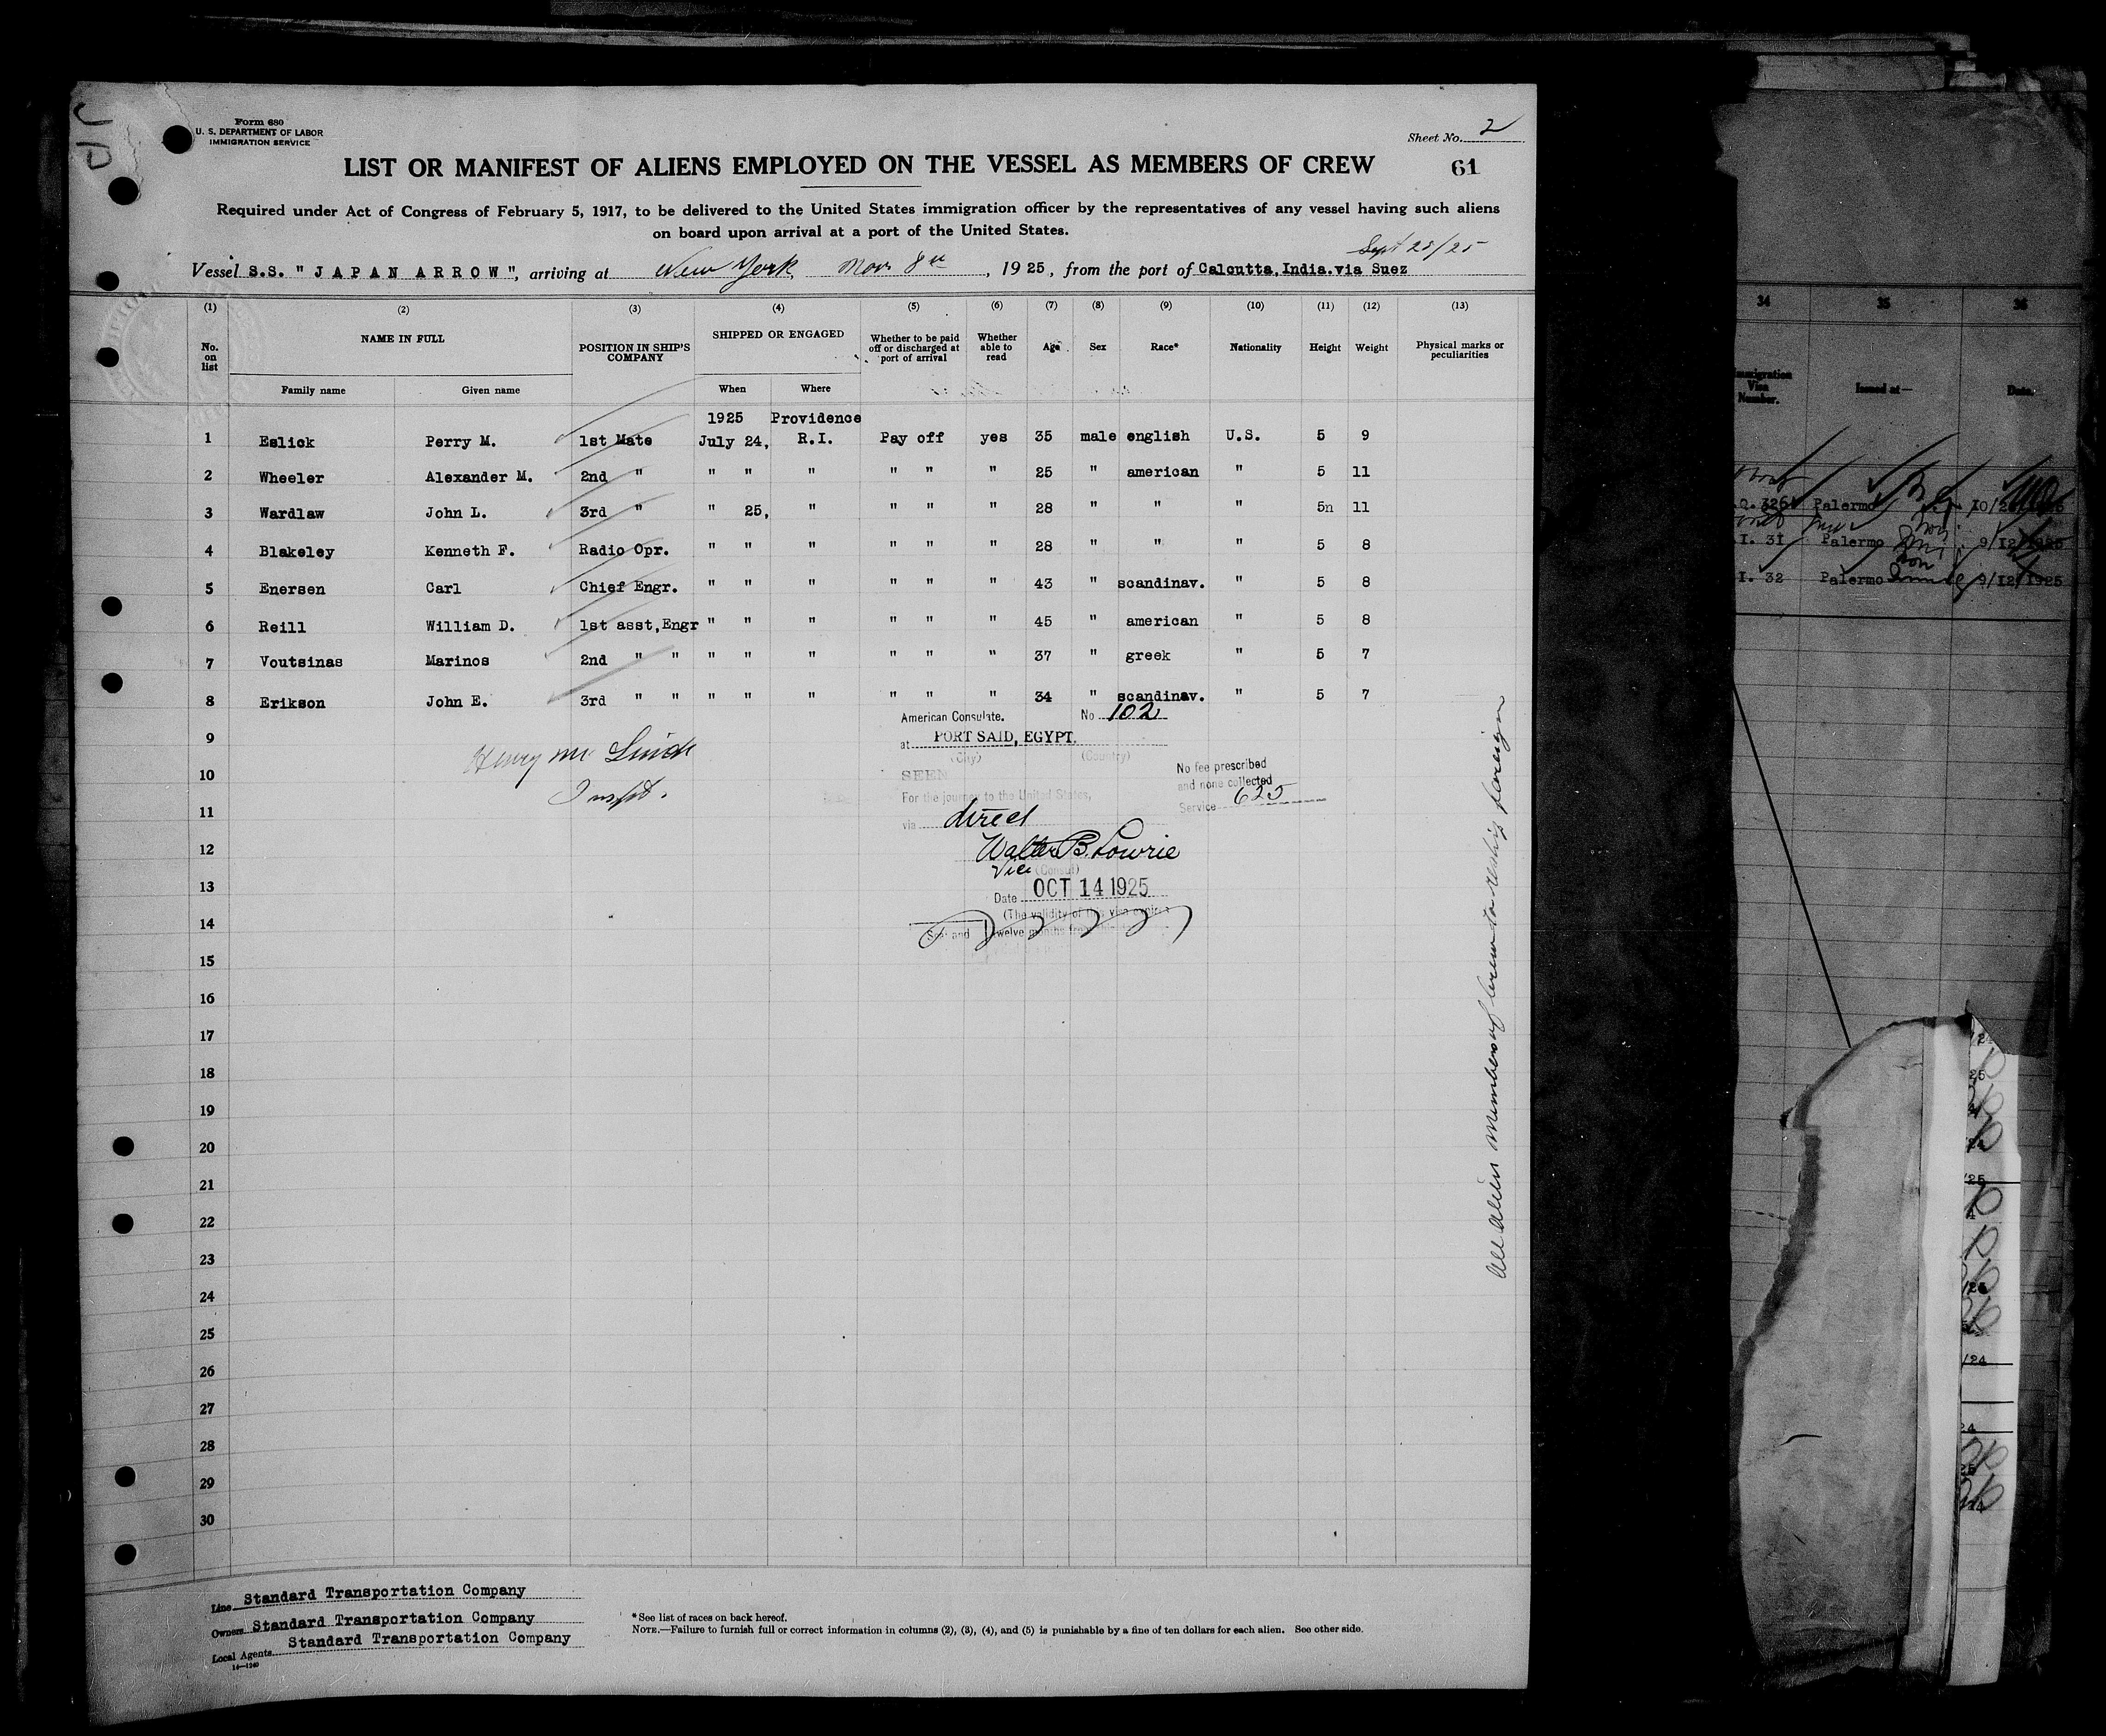 Form 680
U. S. DEPARTMENT OF LABOR
IMMIGRATION SERVICE
Sheet No. 2
LIST OR MANIFEST OF ALIENS EMPLOYED ON THE VESSEL AS MEMBERS OF CREW
61
Required under Act of Congress of February 5, 1917, to be delivered to the United States immigration officer by the representatives of any vessel having such aliens
on board upon arrival at a port of the United States.
Sept 23/25
Vessel S.S. "JAPAN ARROW", arriving at New York Nov 8th, 1925, from the port of Calcutta, India. via Suez
(1) (2) (3) (4) (5) (6) (7) (8) (9) (10) (11) (12) (13)
No. on list NAME IN FULL POSITION IN SHIP'S COMPANY SHIPPED OR ENGAGED Whether to be paid off or discharged at port of arrival Whether able to read Age Sex Race* Nationality Height Weight Physical marks or peculiarities
Family name Given name When Where
1925 Providence
1 Eslick Perry M. 1st Mate July 24, R.I. Pay off yes 35 male english U.S. 5 9
2 Wheeler Alexander M. 2nd " " " " " " " 25 " american " 5 11
3 Wardlaw John L. 3rd " " 25, " " " " 28 " " " 5n 11
4 Blakeley Kenneth F. Radio Opr. " " " " " " 28 " " " 5 8
5 Enersen Carl Chief Engr. " " " " " " 43 " scandinav. " 5 8
6 Reill William D. 1st asst,Engr " " " " " " 45 " american " 5 8
7 Voutsinas Marinos 2nd " " " " " " " " 37 " greek " 5 7
8 Erikson John E. 3rd " " " " " " " " 34 " scandinav. " 5 7
American Consulate. No 102
9
at PORT SAID, EGYPT.
(City) (Country)
Henry Mc
10
SEEN
No fee prescribed
and none collected
Service 625
Inspt.
For the journey to the United States,
11
via direct
12
Walter B. Lowrie
Vice (Consul)
13
Date OCT 14 1925
(The validity of this visa expires
14
twelve months from
15
16
17
18
19
20
21
22
23
24
25
26
27
28
29
30
All alien members of crew to reship foreign
Line Standard Transportation Company
Owners Standard Transportation Company
Local Agents Standard Transportation Company
14—1240
*See list of races on back hereof.
NOTE.—Failure to furnish full or correct information in columns (2), (3), (4), and (5) is punishable by a fine of ten dollars for each alien. See other side.
34 35 36
Immigration Visa Number. Issued at— Date.
Palermo
I. 31 Palermo 9/12/1925
I. 32 Palermo 9/12/1925